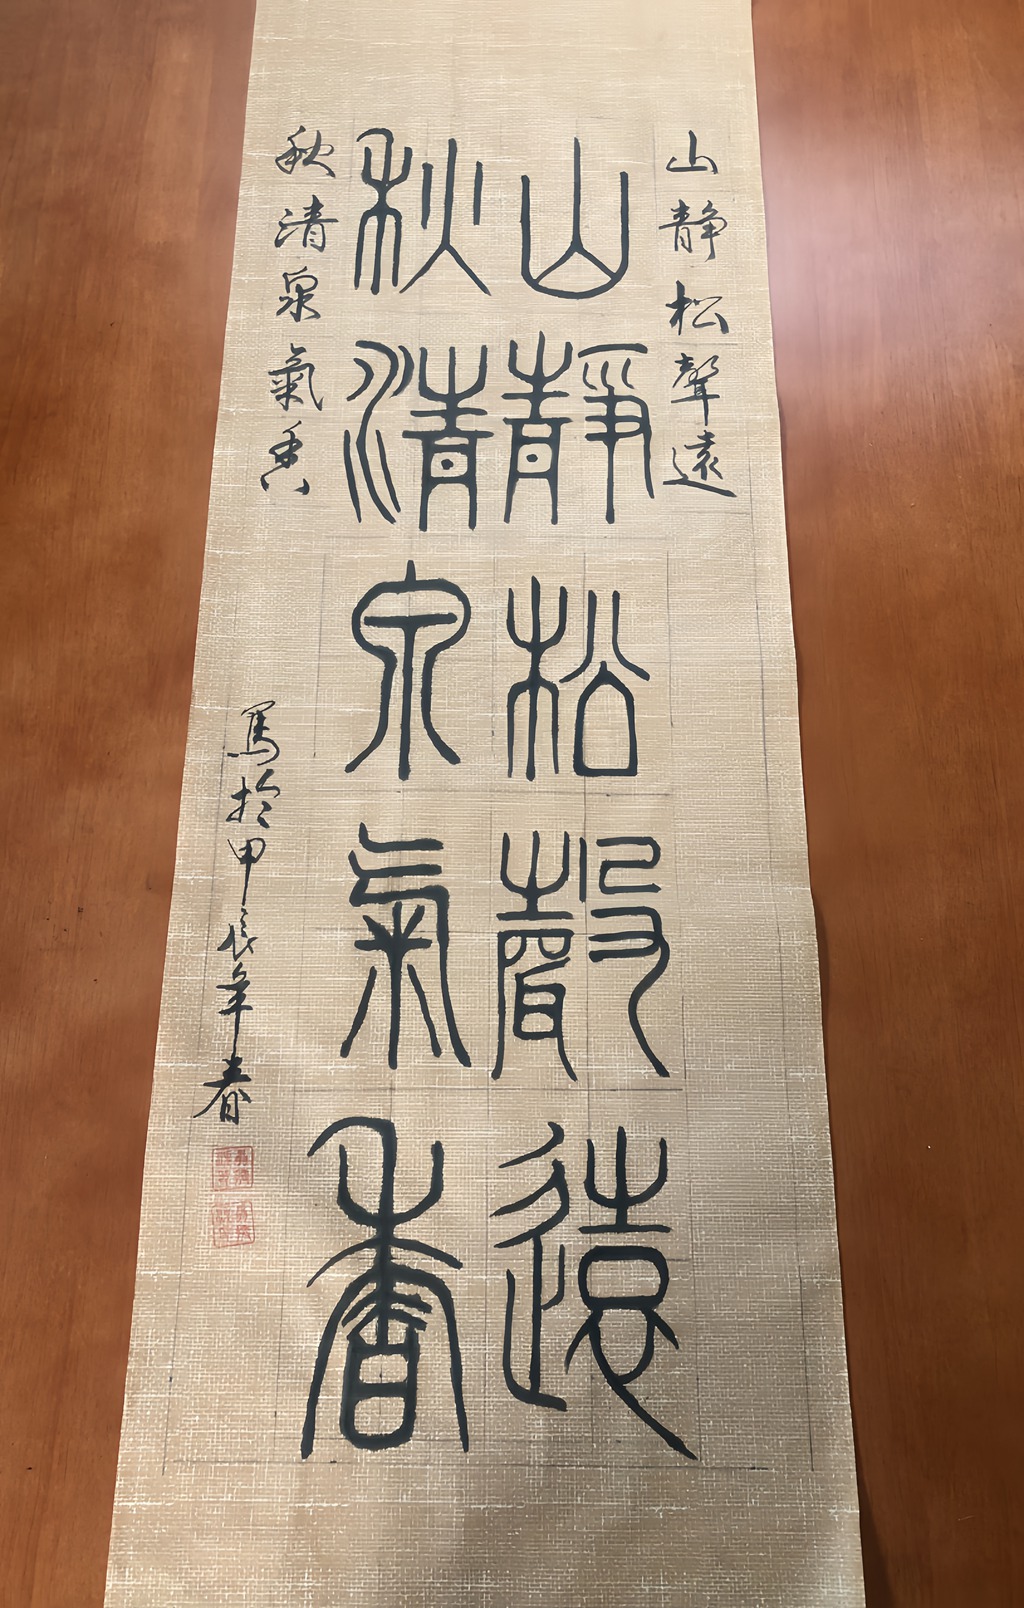 山静松聲遠
山靜松聲遠
秋清泉氣香
秋清泉氣香
寫於甲辰年春